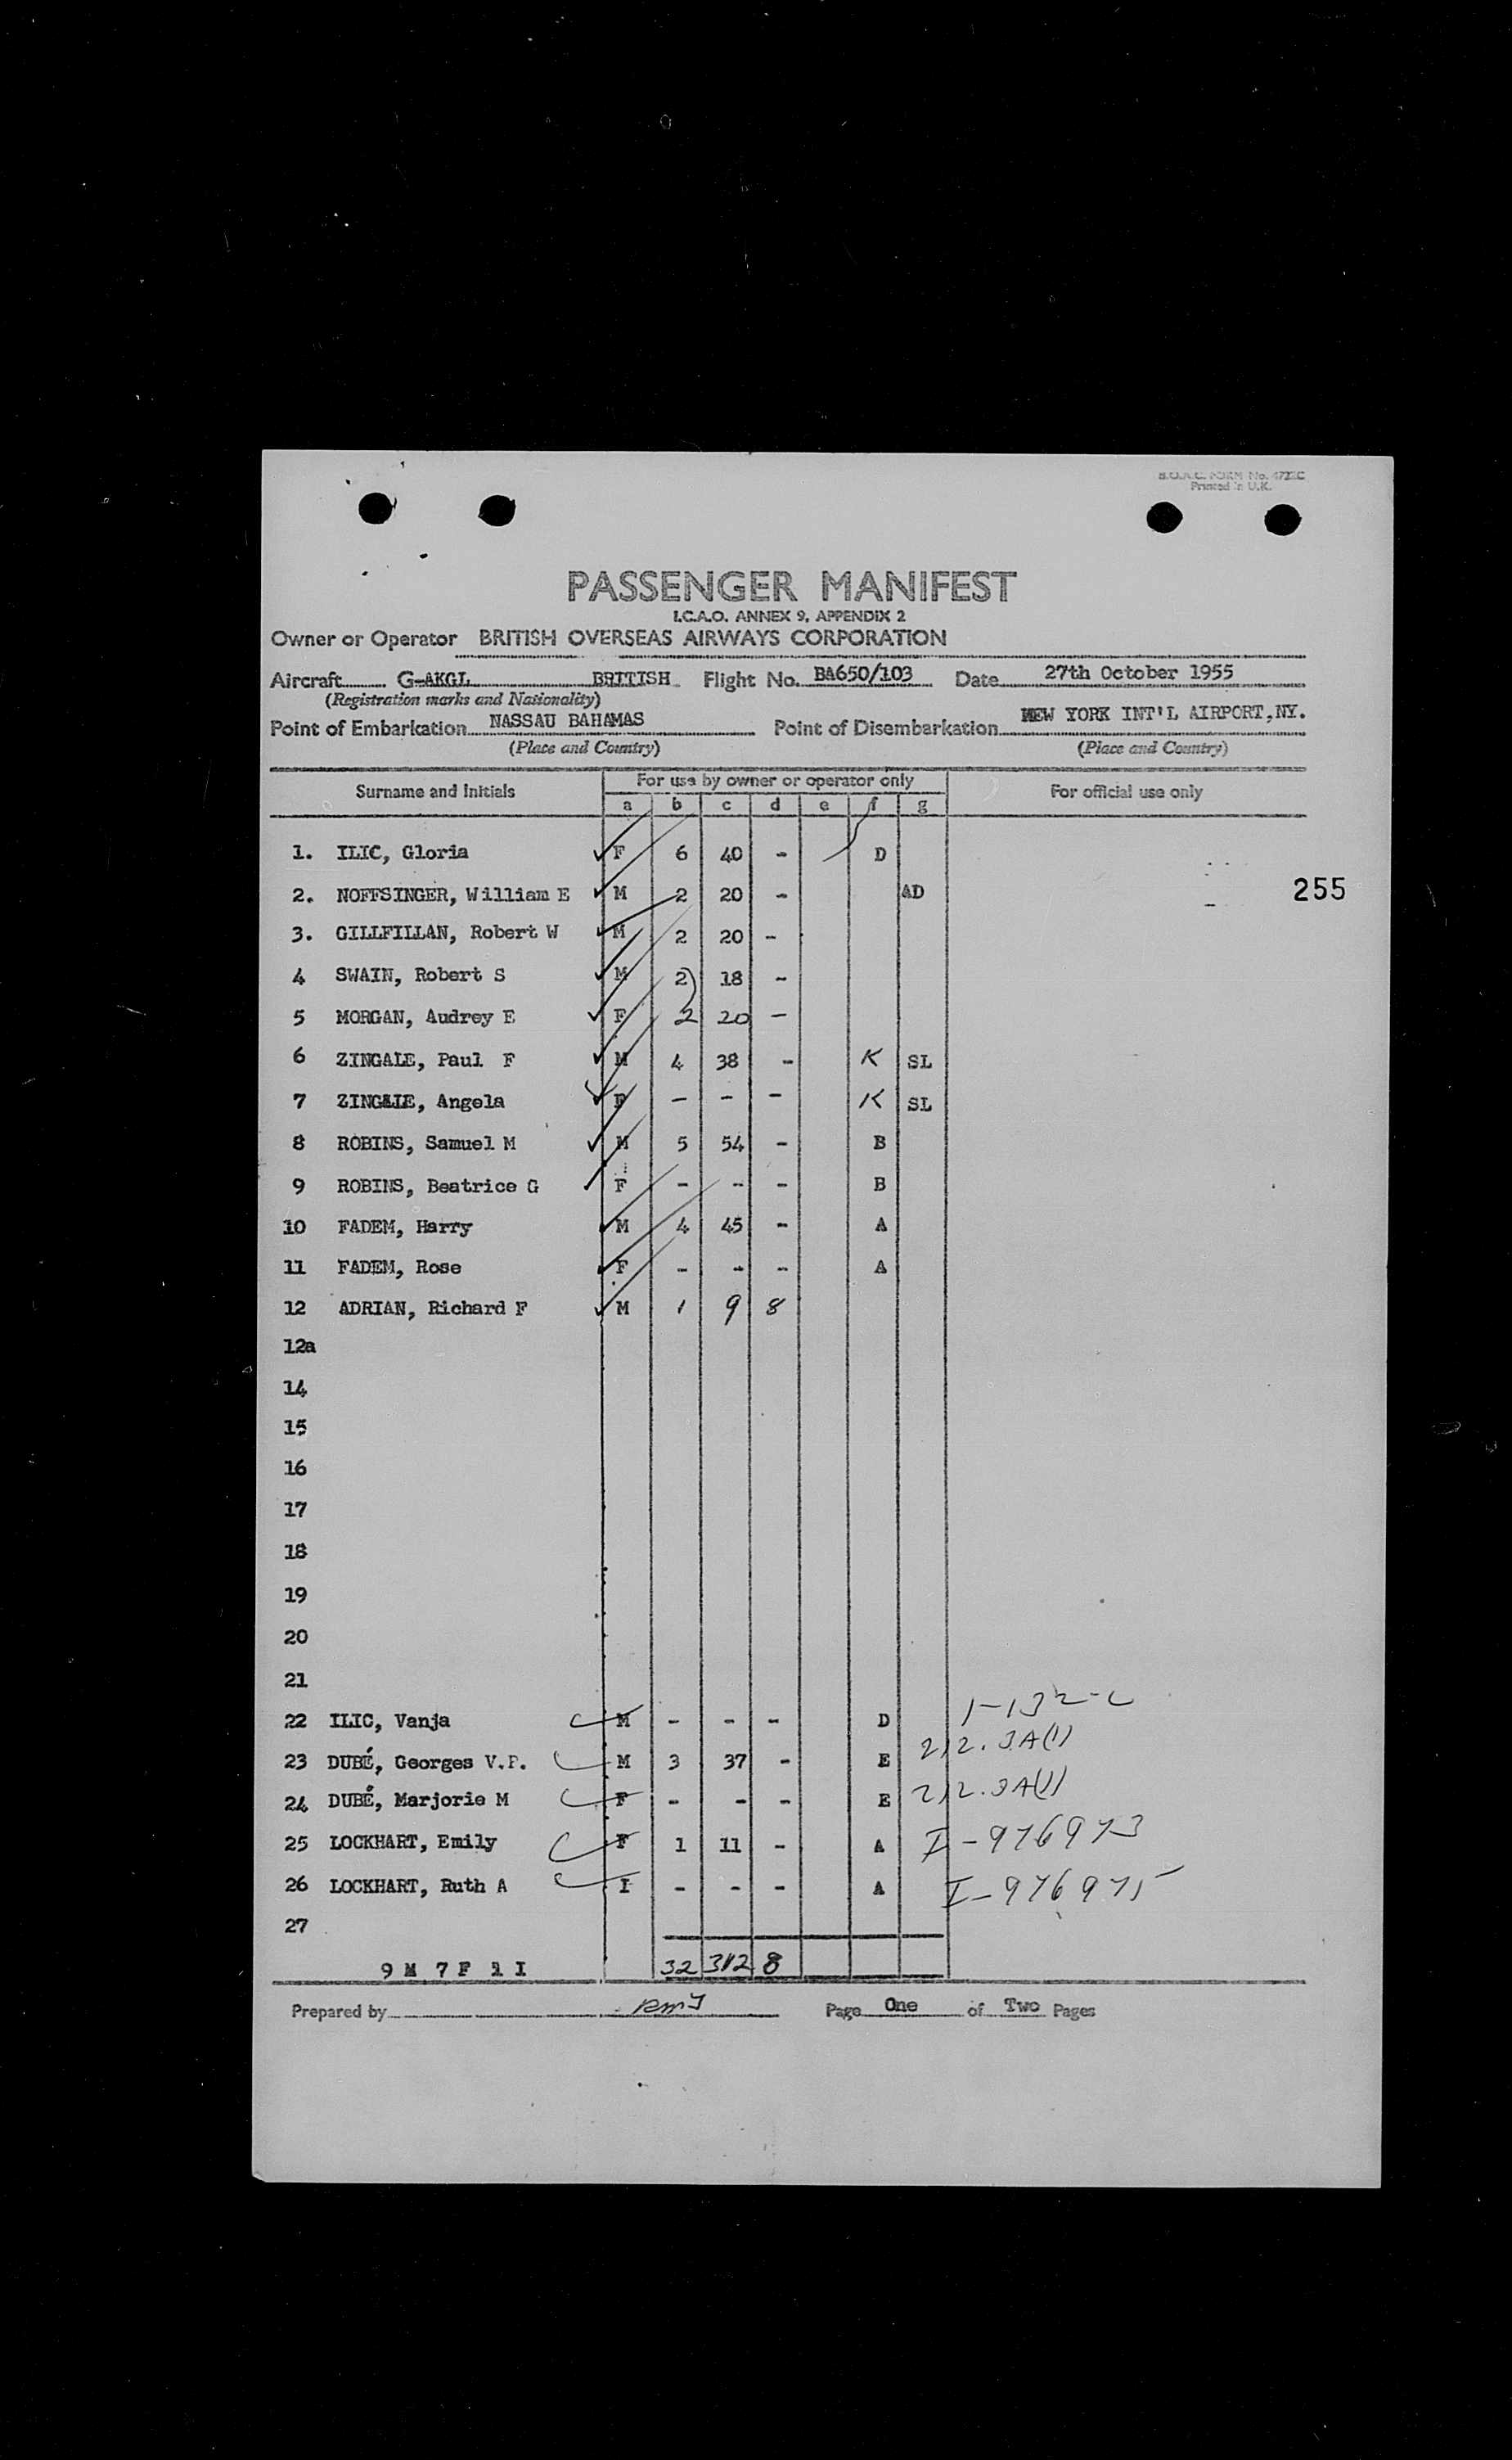 B.O.A.C. FORM No. 4722C
Printed in U.K.
PASSENGER MANIFEST
I.C.A.O. ANNEX 9, APPENDIX 2
Owner or Operator BRITISH OVERSEAS AIRWAYS CORPORATION
Aircraft G-AKGL BRITISH Flight No. BA650/103 Date 27th October 1955
(Registration marks and Nationality)
Point of Embarkation NASSAU BAHAMAS Point of Disembarkation NEW YORK INT'L AIRPORT,NY.
(Place and Country) (Place and Country)
Surname and Initials For use by owner or operator only For official use only
a b c d e f g
1. ILIC, Gloria F 6 40 - D
2. NOFFSINGER, William E M 2 20 - AD 255
3. GILLFILLAN, Robert W M 2 20 -
4 SWAIN, Robert S M 2 18 -
5 MORGAN, Audrey E F 2 20 -
6 ZINGALE, Paul F M 4 38 - K SL
7 ZINGALE, Angela F - - - K SL
8 ROBINS, Samuel M M 5 54 - B
9 ROBINS, Beatrice G F - - - B
10 FADEM, Harry M 4 45 - A
11 FADEM, Rose F - - - A
12 ADRIAN, Richard F M 1 9 8
12a
14
15
16
17
18
19
20
21
22 ILIC, Vanja M - - - D 1-132-C
23 DUBÉ, Georges V.P. M 3 37 - E 212.3A(1)
24 DUBÉ, Marjorie M F - - - E 212.3A(1)
25 LOCKHART, Emily F 1 11 - A I-976973
26 LOCKHART, Ruth A I - - - A I-976975
27
9 M 7 F 1 I 32 312 8
Prepared by Page One of Two Pages